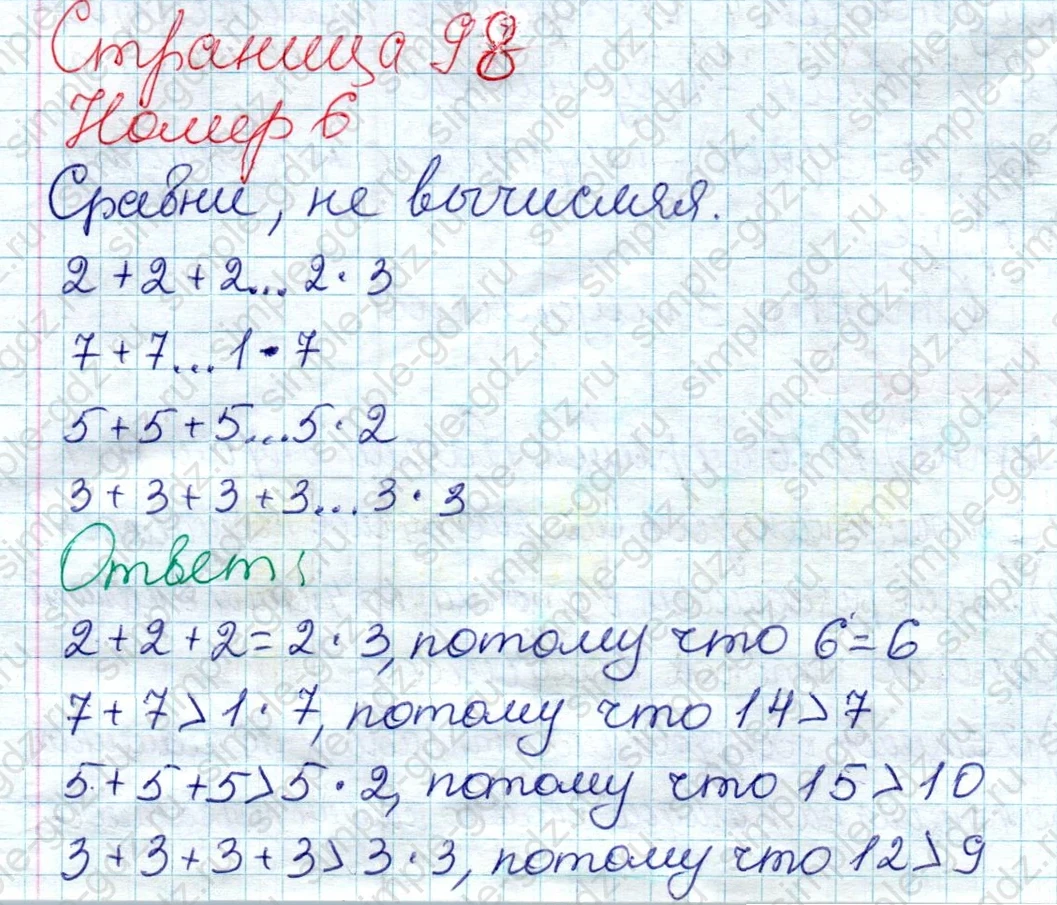 Страница 98
Номер 6
Сравни, не вычисляя.
2 + 2 + 2... 2 · 3
7 + 7... 1 · 7
5 + 5 + 5... 5 · 2
3 + 3 + 3 + 3... 3 · 3
Ответ:
2 + 2 + 2 = 2 · 3, потому что 6 = 6
7 + 7 > 1 · 7, потому что 14 > 7
5 + 5 + 5 > 5 · 2, потому что 15 > 10
3 + 3 + 3 + 3 > 3 · 3, потому что 12 > 9
simple-gdz.ru